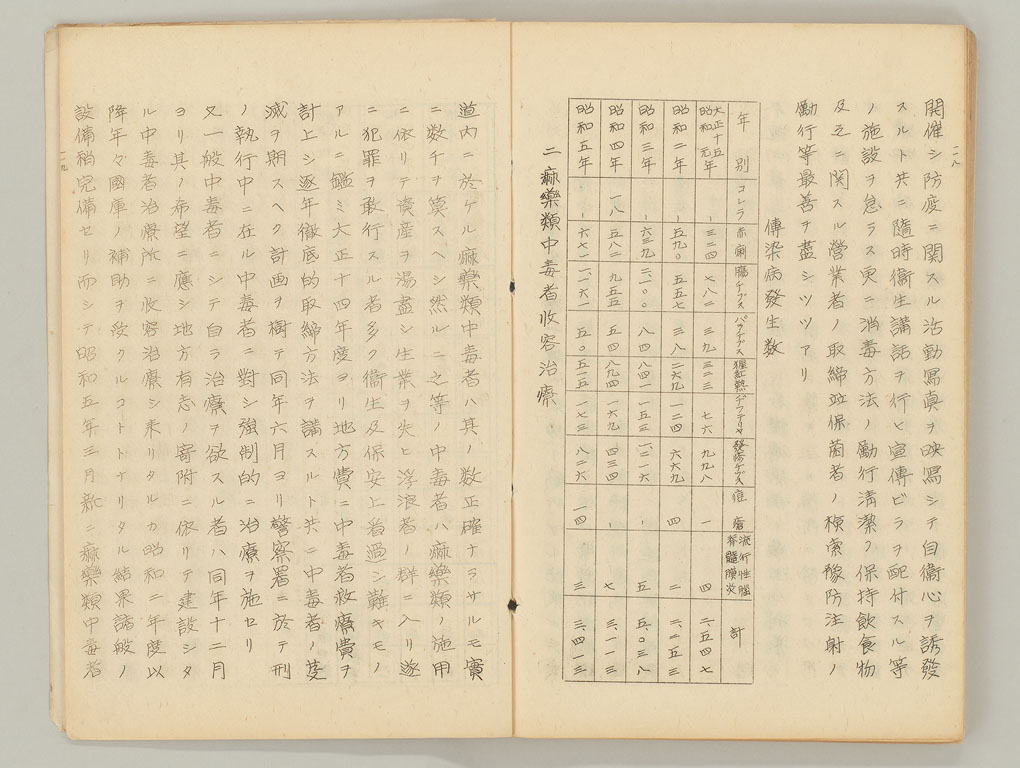 二八
開催シ防疫ニ関スル活動寫真ヲ映寫シテ自衞心ヲ誘發
スルト共ニ隨時衞生講話ヲ行ヒ宣傳ビラヲ配付スル等
ノ施設ヲ怠ラス更ニ消毒方法ノ勵行清潔ノ保持飲食物
及之ニ関スル營業者ノ取締竝保菌者ノ検索豫防注射ノ
勵行等最善ヲ盡シツツアリ
傳染病發生数
年別 コレラ 赤痢 膓チブス パラチブス 猩紅熱 ヂフテリヤ 發疹チブス 痘瘡 流行性腦脊髓膜炎 計
大正十五 昭和元年 - 三二四 七八二 三九 三二三 七六 九九八 一 四 二、五四七
昭和二年 - 五九〇 五五七 三八 二六九 一二四 六六九 四 二 二、二五三
昭和三年 - 六三九 二、一〇〇 八四 八四一 一五三 一、二一六 - 五 五、〇三八
昭和四年 一八 五八二 九五五 五四 八九四 一六九 四三四 - 七 三、一一三
昭和五年 - 六七一 一、一六一 五〇 五一五 一七三 八二六 一四 三 三、四一三
二 痲藥類中毒者收容治療
道内ニ於ケル痲藥類中毒者ハ其ノ数正確ナラサルモ實
ニ数千ヲ算スヘシ然ルニ之等ノ中毒者ハ痲藥類ノ施用
ニ依リテ資産ヲ湯盡シ生業ヲ失ヒ浮浪者ノ群ニ入リ遂
ニ犯罪ヲ敢行スル者多ク衞生及保安上看過シ難キモノ
アルニ鑑ミ大正十四年度ヨリ地方費ニ中毒者救療費ヲ
計上シ逐年徹底的取締方法ヲ講スルト共ニ中毒者ノ芟
滅ヲ期スヘク計画ヲ樹テ同年六月ヨリ警察署ニ於テ刑
ノ執行中ニ在ル中毒者ニ對シ強制的ニ治療ヲ施セリ
又一般中毒者ニシテ自ラ治療ヲ欲スル者ハ同年十二月
ヨリ其ノ希望ニ應シ地方有志ノ寄附ニ依リテ建設シタ
ル中毒者治療所ニ收容治療シ来リタルカ昭和二年度以
降年々國庫ノ補助ヲ受クルコトトナリタル結果諸般ノ
設備稍完備セリ而シテ昭和五年三月新ニ痲藥類中毒者
二九